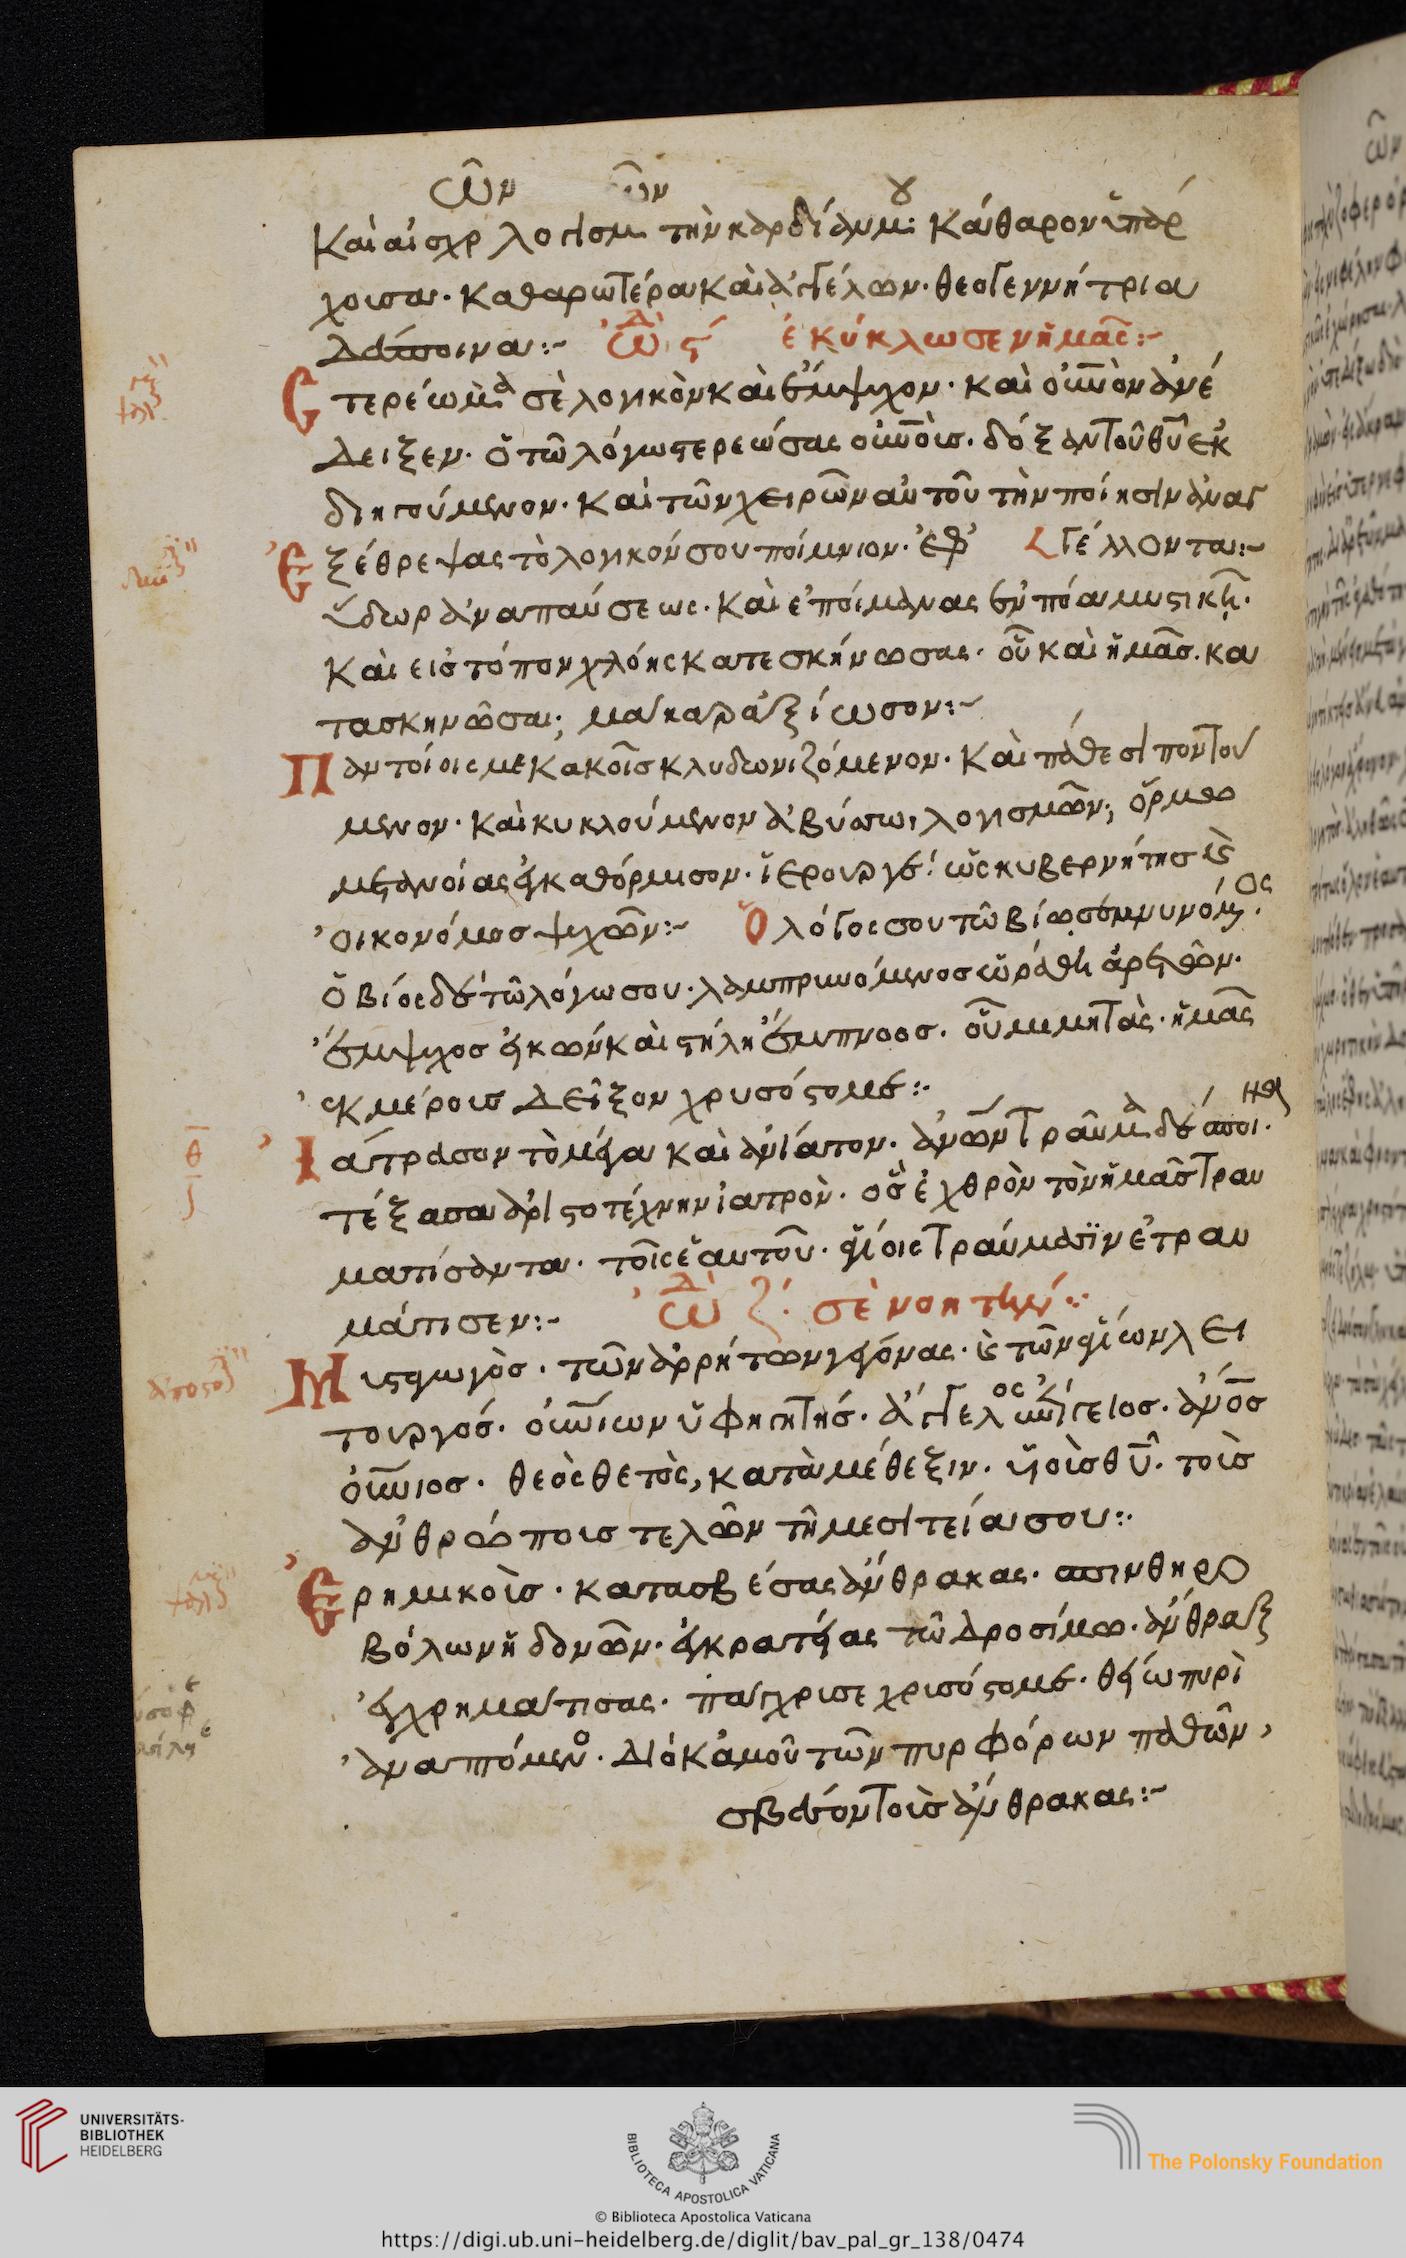 Καὶ αἰσχρῶν λογισμῶν τὴν καρδίαν μου κάθαρον ὑπάρ
χουσα· καθαρωτέρα καὶ ἀγγέλων· θεογεννήτρια
Δέσποινα:~ ᾨδὴ ϛ´ ἐκύκλωσεν ἡμᾶς:~
Στερέωμα σὲ λογικὸν καὶ ἔμψυχον· καὶ οὐνὸν ἀνέ
δειξεν· ὁ τῶ λόγω στερεώσας οὐνοὺς· δόξαν τοῦ θῦ ἐκ
διηγούμενον· καὶ τῶν χειρῶν αὐτοῦ τὴν ποίησιν ἀναγ
Ἐξέθρεψας τὸ λογικόν σου ποίμνιον· ἐφ᾽ γέλλοντα:~
ὕδωρ ἀναπαύσεως· καὶ ἐποίμανας ἐν πόα μυστικῆ·
καὶ εἰς τόπον χλόης κατεσκήνωσας· οὗ καὶ ἡμᾶς· κα
τασκηνῶσαι; μάκαρ ἀξίωσον:~
Παντοίοις με κακοῖς κλυδωνιζόμενον· καὶ πάθεσι ποντού
μενον· καὶ κυκλούμενον ἀβύσσω, λογισμῶν; ὅρμω
μετανοίας ἐγκαθόρμισον· ἱερουργέ! ὡς κυβερνήτης κὶ
οἰκονόμος ψυχῶν:~ Ὁ λόγος σου τῶ βίω σεμνυνόμενος·
ὁ βίος δὲ τῶ λόγω σου· λαμπρυνόμενος ὡράθη ἀρετῶν·
ἔμψυχος εἰκὼν καὶ στήλη ἔμπνοος· οὗ μιμητὰς· ἡμᾶς
ἐκ μέρους δεῖξον χρυσόστομε:~
Ἰάτρευσον τὸ μέγα καὶ ἀνίατον· ἀνῶν τραῦμα δέσποι·
τέξασα ἀριστοτέχνην ἰατρὸν· ὃς ἐχθρὸν τὸν ἡμᾶς τραυ
ματίσαντα· τοῖς ἑαυτοῦ· θείοις τραύμασιν ἐτραυ
μάτισεν:~ ᾨδὴ ζ´· σὲ νοητήν:~
Μυσταγωγὸς· τῶν ἀρρήτων γέγονας· κὶ τῶν θείων λει
τουργός· οὐνίων ὑφηγητής· ἄγγελος ἐπίγειος· ἀνος
οὐνιος· θεὸς θετὸς, κατὰ μέθεξιν· υἱοὶς θῦ· τοὶς
ἀνθρώποις τελῶν τῆ μεσιτεία σου:~
Ἐρημικοὶς· κατασβέσας ἄνθρακας· σπινθηρο
βόλων ἡδονῶν· ἐγκρατείας τῶ δροσίμω· ἄνθραξ
ἐχρημάτισας· πάγχρυσε χρυσόστομε· θείω πυρὶ
ἀναπτόμενος· διὸ κἀμοῦ τῶν πυρφόρων παθῶν,
σβέσον τοὺς ἄνθρακας:~
UNIVERSITÄTS-
BIBLIOTHEK
HEIDELBERG
BIBLIOTECA APOSTOLICA VATICANA
The Polonsky Foundation
© Biblioteca Apostolica Vaticana
https://digi.ub.uni-heidelberg.de/diglit/bav_pal_gr_138/0474